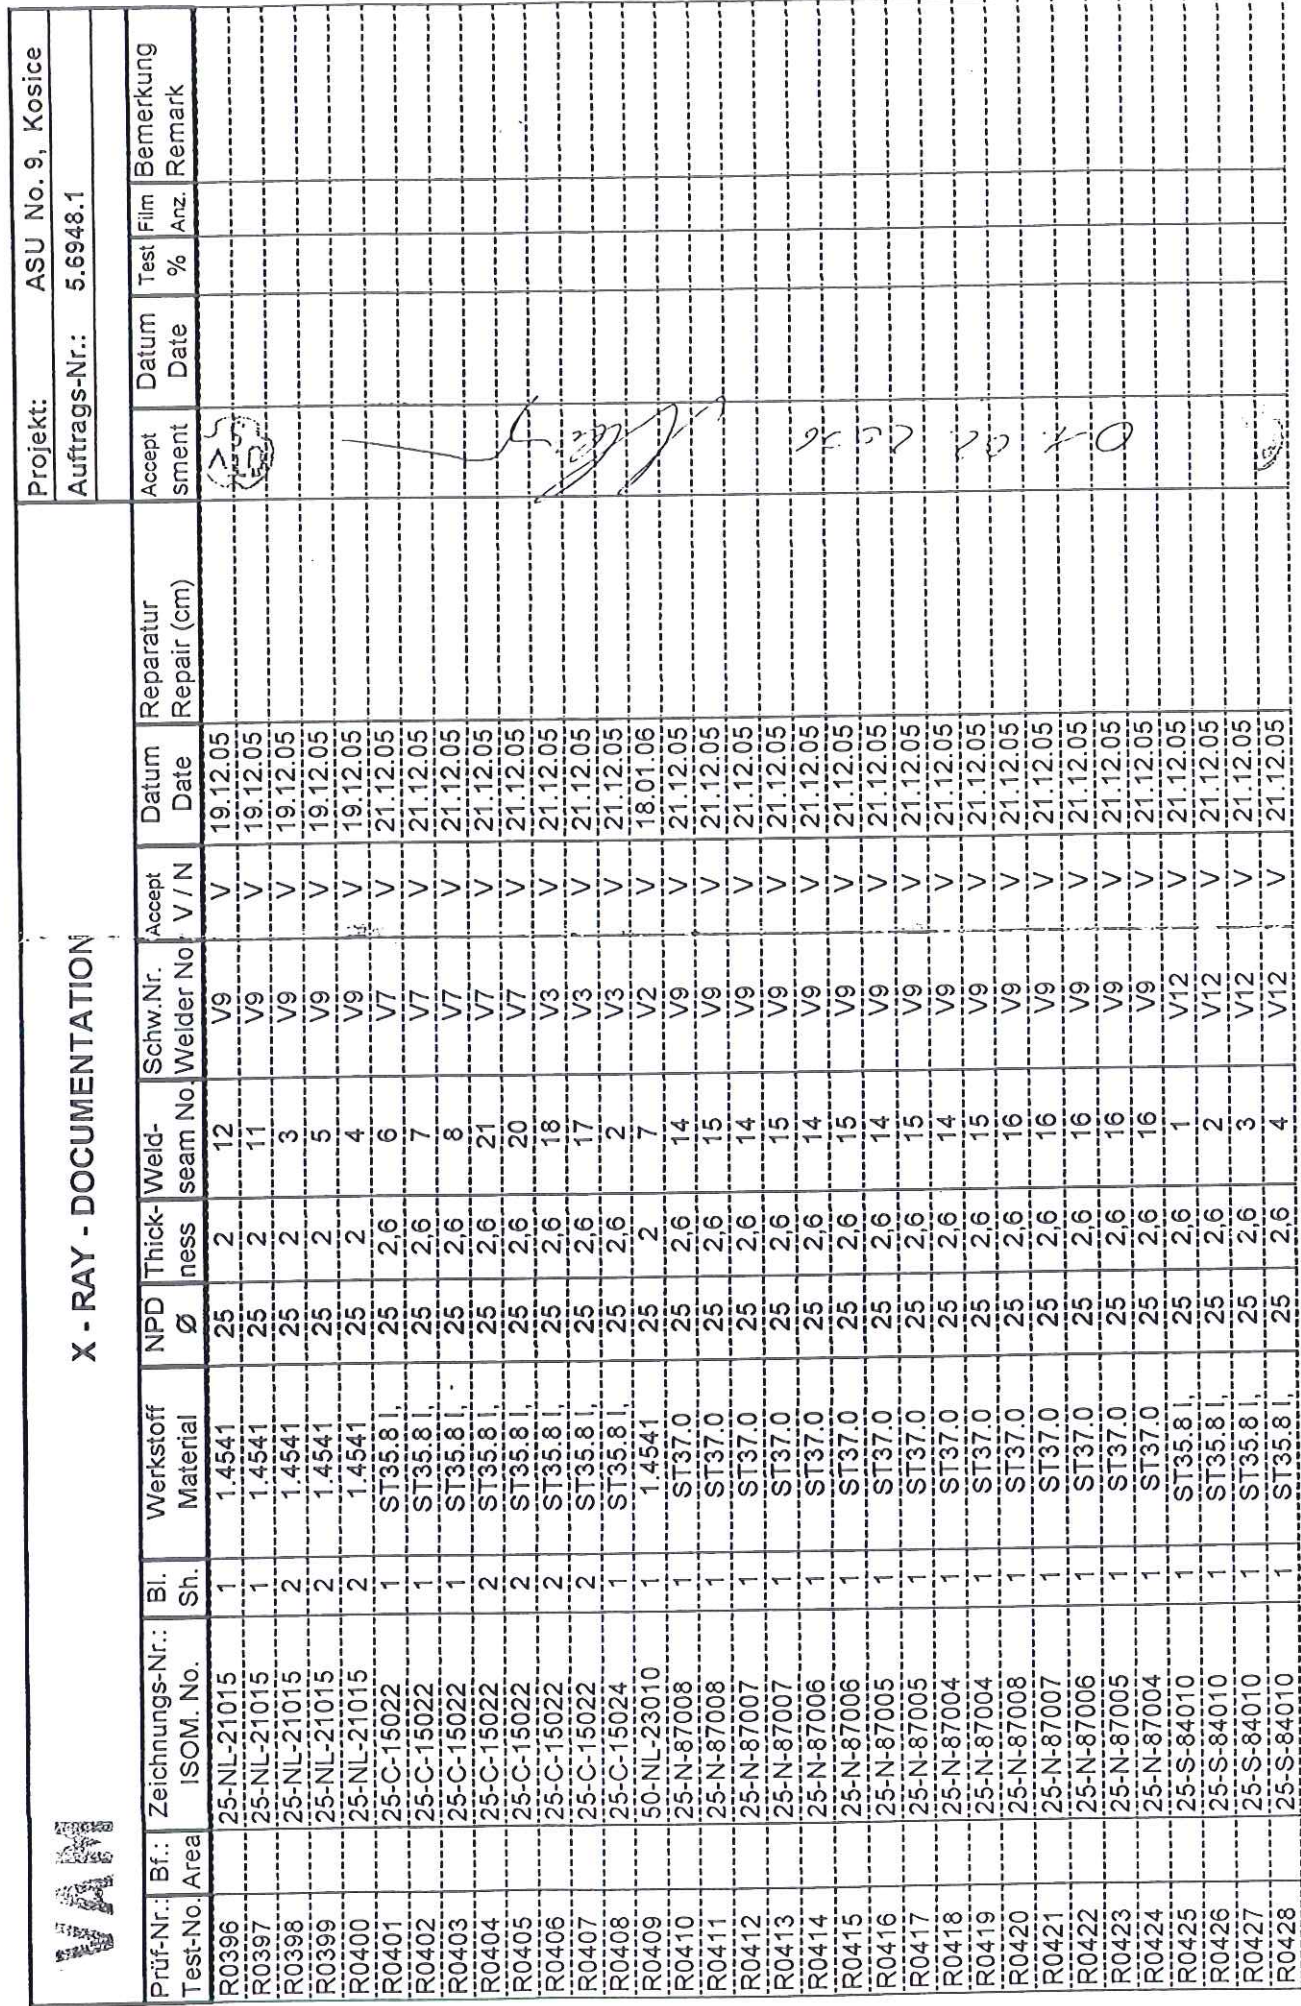 VAM
X - RAY - DOCUMENTATION
Projekt: ASU No. 9, Kosice
Auftrags-Nr.: 5.6948.1
Prüf-Nr.: Bf.: Zeichnungs-Nr.: Bl. Werkstoff NPD Thick- Weld- Schw.Nr. Accept Datum Reparatur Accept Datum Test Film Bemerkung
Test-No. Area ISOM. No. Sh. Material Ø ness seam No. Welder No V / N Date Repair (cm) sment Date % Anz. Remark
R0396 25-NL-21015 1 1.4541 25 2 12 V9 V 19.12.05
R0397 25-NL-21015 1 1.4541 25 2 11 V9 V 19.12.05
R0398 25-NL-21015 2 1.4541 25 2 3 V9 V 19.12.05
R0399 25-NL-21015 2 1.4541 25 2 5 V9 V 19.12.05
R0400 25-NL-21015 2 1.4541 25 2 4 V9 V 19.12.05
R0401 25-C-15022 1 ST35.8 I, 25 2,6 6 V7 V 21.12.05
R0402 25-C-15022 1 ST35.8 I, 25 2,6 7 V7 V 21.12.05
R0403 25-C-15022 1 ST35.8 I, 25 2,6 8 V7 V 21.12.05
R0404 25-C-15022 2 ST35.8 I, 25 2,6 21 V7 V 21.12.05
R0405 25-C-15022 2 ST35.8 I, 25 2,6 20 V7 V 21.12.05
R0406 25-C-15022 2 ST35.8 I, 25 2,6 18 V3 V 21.12.05
R0407 25-C-15022 2 ST35.8 I, 25 2,6 17 V3 V 21.12.05
R0408 25-C-15024 1 ST35.8 I, 25 2,6 2 V3 V 21.12.05
R0409 50-NL-23010 1 1.4541 25 2 7 V2 V 18.01.06
R0410 25-N-87008 1 ST37.0 25 2,6 14 V9 V 21.12.05
R0411 25-N-87008 1 ST37.0 25 2,6 15 V9 V 21.12.05
R0412 25-N-87007 1 ST37.0 25 2,6 14 V9 V 21.12.05
R0413 25-N-87007 1 ST37.0 25 2,6 15 V9 V 21.12.05
R0414 25-N-87006 1 ST37.0 25 2,6 14 V9 V 21.12.05
R0415 25-N-87006 1 ST37.0 25 2,6 15 V9 V 21.12.05
R0416 25-N-87005 1 ST37.0 25 2,6 14 V9 V 21.12.05
R0417 25-N-87005 1 ST37.0 25 2,6 15 V9 V 21.12.05
R0418 25-N-87004 1 ST37.0 25 2,6 14 V9 V 21.12.05
R0419 25-N-87004 1 ST37.0 25 2,6 15 V9 V 21.12.05
R0420 25-N-87008 1 ST37.0 25 2,6 16 V9 V 21.12.05
R0421 25-N-87007 1 ST37.0 25 2,6 16 V9 V 21.12.05
R0422 25-N-87006 1 ST37.0 25 2,6 16 V9 V 21.12.05
R0423 25-N-87005 1 ST37.0 25 2,6 16 V9 V 21.12.05
R0424 25-N-87004 1 ST37.0 25 2,6 16 V9 V 21.12.05
R0425 25-S-84010 1 ST35.8 I, 25 2,6 1 V12 V 21.12.05
R0426 25-S-84010 1 ST35.8 I, 25 2,6 2 V12 V 21.12.05
R0427 25-S-84010 1 ST35.8 I, 25 2,6 3 V12 V 21.12.05
R0428 25-S-84010 1 ST35.8 I, 25 2,6 4 V12 V 21.12.05